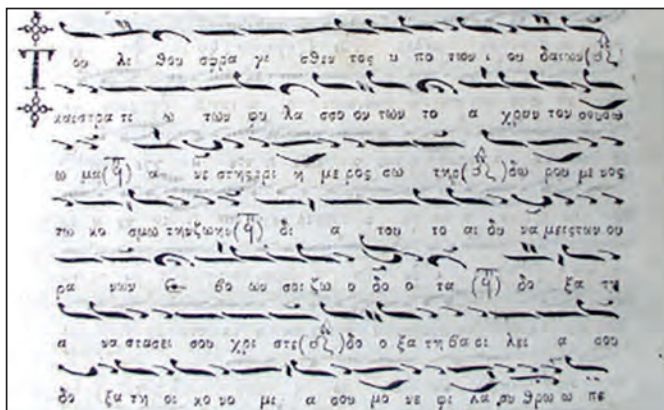 Του λι θου σφρα γι σθεν τος υ πο των ι ου δαιων
και στρα τι ω των φυ λα σσον των το α χραν τον σου σω
ω μα(q) α νε στης τρι η με ρος σω τηρ( ) δω ρου με νος
τω κο σμω την ζωην(q) δι α του το αι δυ να μεις των ου
ρα νων ε βο ων σοι ζω ο δο ο τα (q) δο ξα τη
α να στασει σου χρι στε( )δο ο ξα τη βα σι λει α σου
δο ξα τη οι κο νο μι α σου μο νε φι λαν θρω ω πε